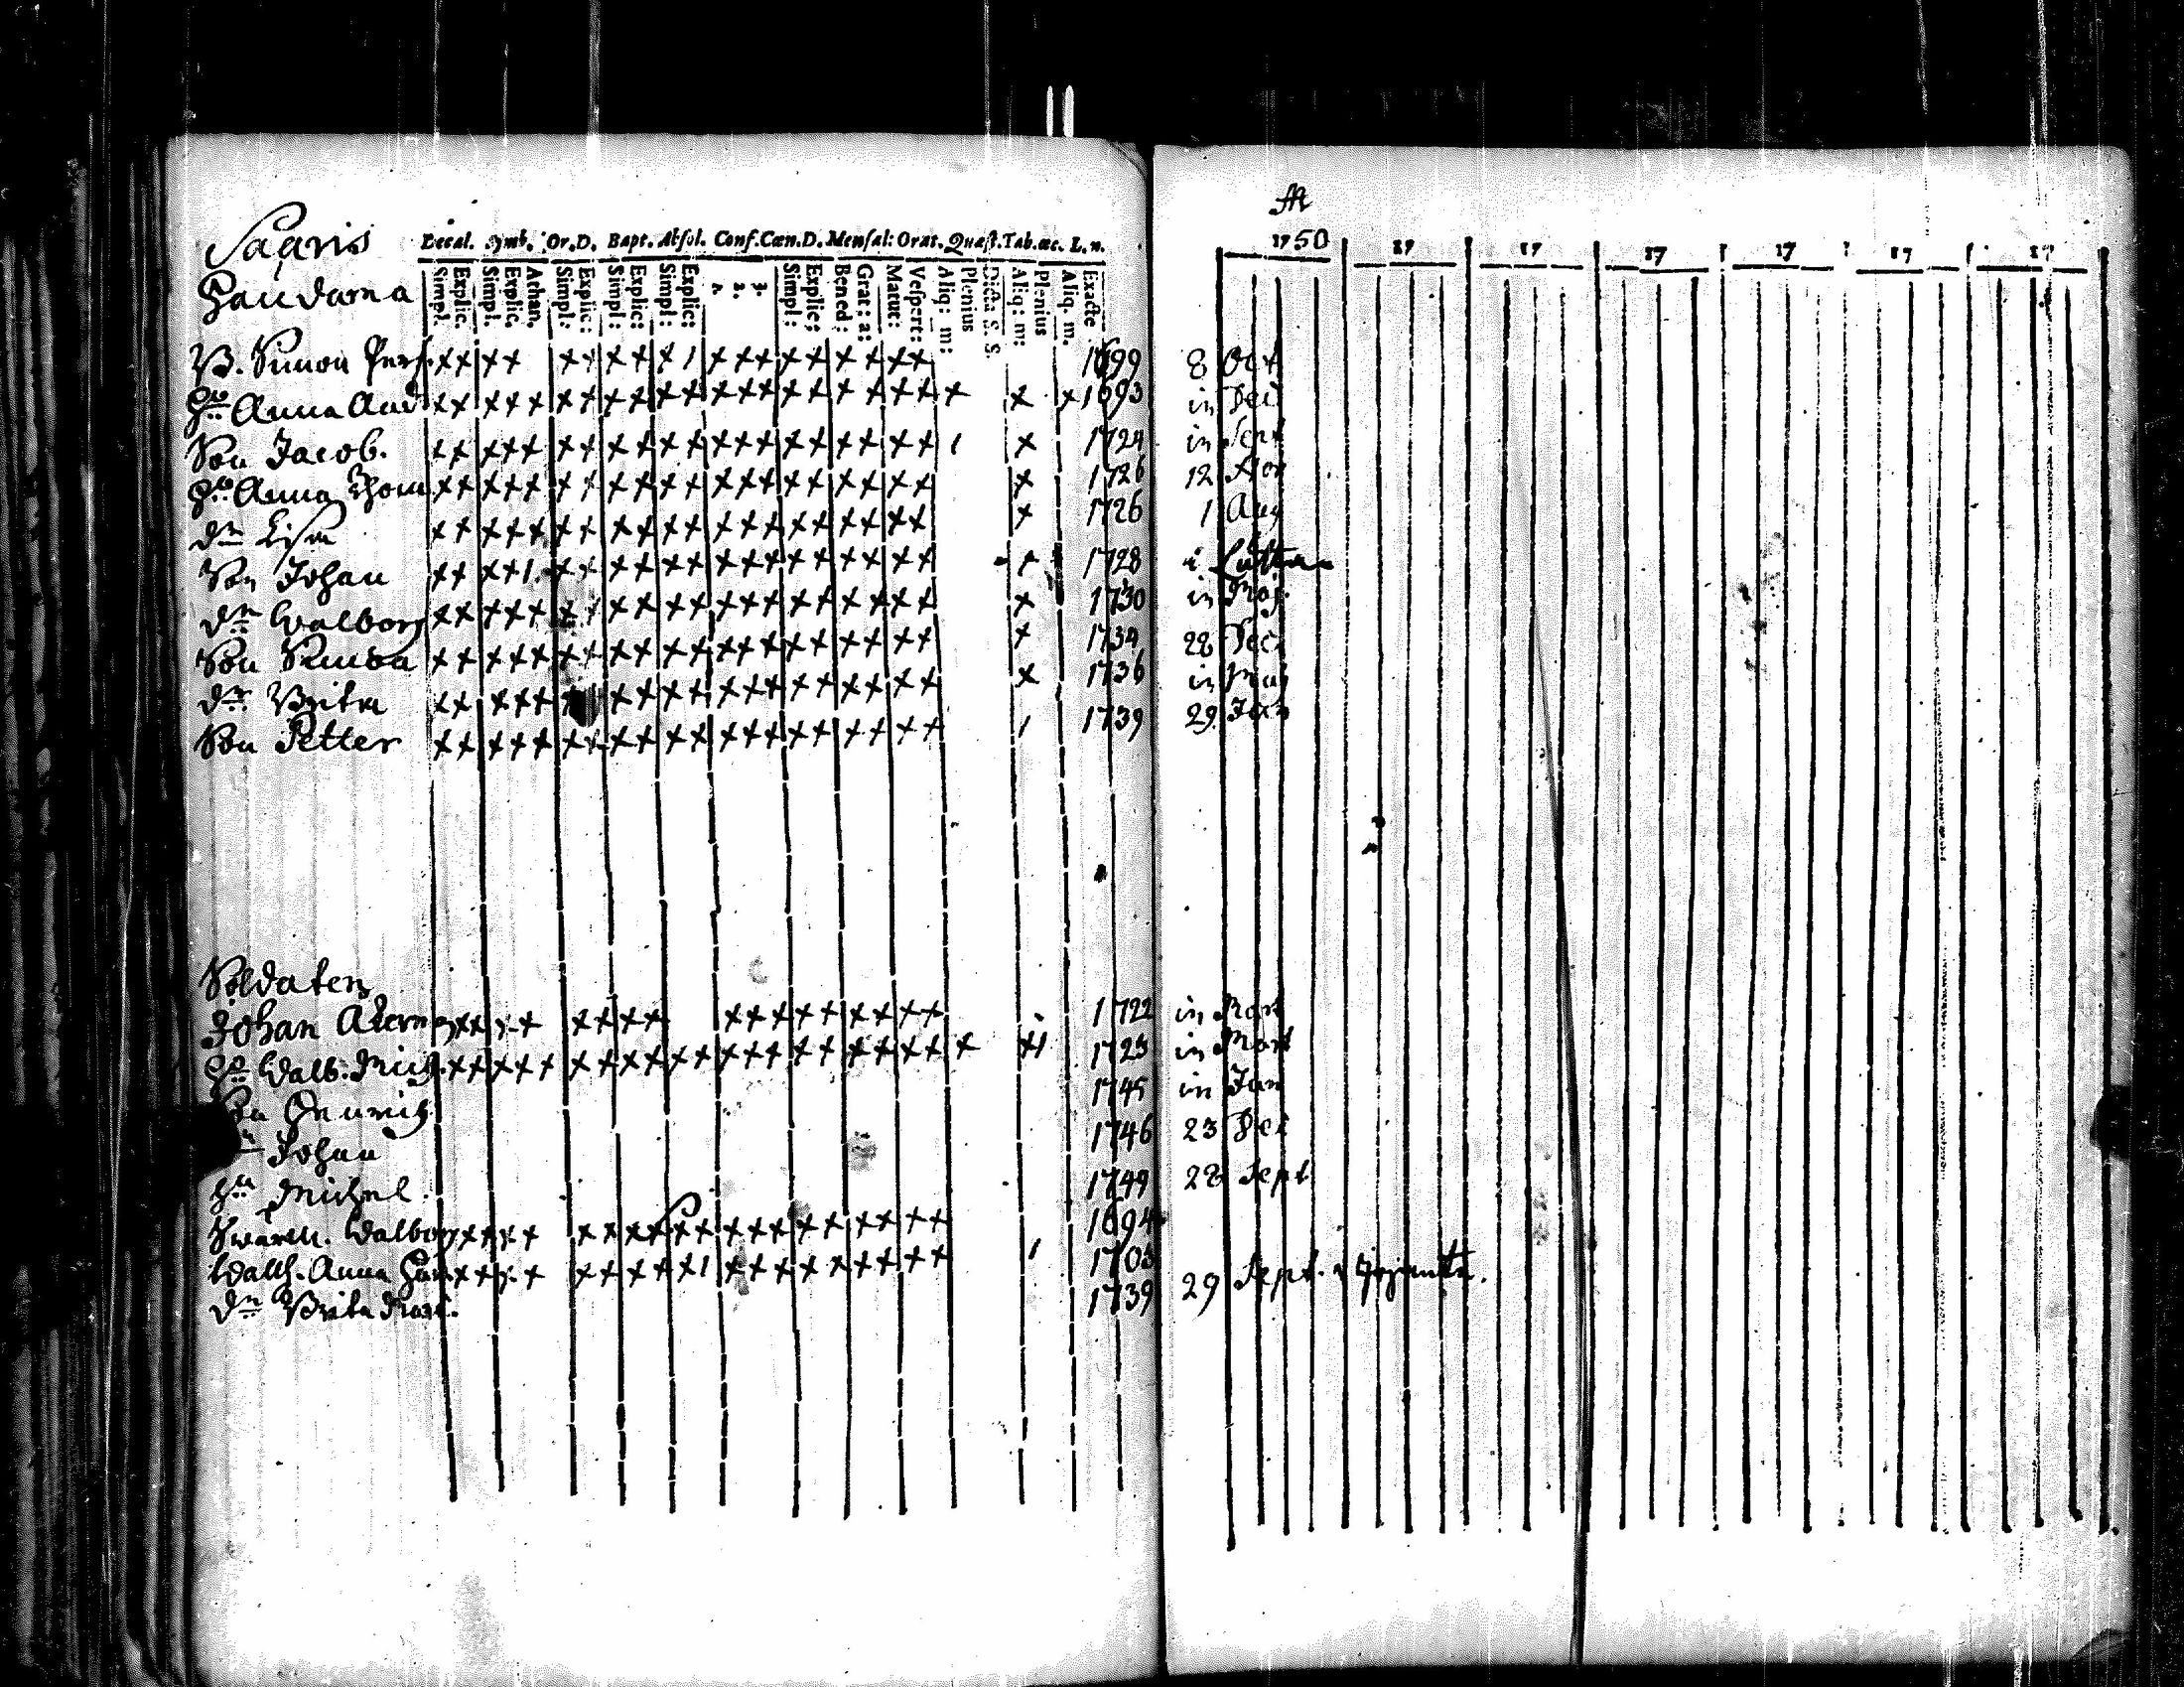 Saaris
Decal. Symb. Or.D. Bapt. Absol. Conf. Cœn.D. Mensal: Orat. Quæst. Tab.œc. L.n.
Simpl. Explic. Simpl. Explic. Athan. Simpl: Explic: Simpl: Explic: Simpl: Explic: 1. 2. 3. Simpl: Explic: Bened: Grat: a: Matut: Vespert: Aliq: m: Plenius Dicta S.S. Aliq: m: Plenius Aliq. m. Exacte
1750 17 17 17 17 17 17
B. Simon Pers. ×× ×× ×× ×× × 1 ××× ×× ×× ×× 1699 8 Oct
Anna And ×× ××× ×× ×× ×× ××× ×× ×× ×× × × × 1693 in
Son Jacob. ×× ××× ×× ×× ×× ××× ×× ×× ×× 1 × 1724 in Sept
Anna Thom ×× ××× ×× ×× ×× ××× ×× ×× ×× × 1726 12
dr Lisa ×× ××× ×× ×× ×× ××× ×× ×× ×× × 1726 1 Aug
Son Johan ×× ××1 ×× ×× ×× ××× ×× ×× ×× × 1728
dr Walborg ×× ××× ×× ×× ×× ××× ×× ×× ×× × 1730 in Maj
Son Simon ×× ××× ×× ×× ×× ××× ×× ×× ×× × 1734 22 Dec
dr Brita ×× ××× × ×× ×× ××× ×× ×× ×× × 1736 in Maj
Son Petter ×× ××× ×× ×× ×× ××× ×× ×× ×× 1 1739 29 Jan
Soldaten
Johan ×× ×× ×× ×× ××× ×× ×× ×× 1722 in Mart
Walb. Mich. ×× ××× ×× ×× ×× ××× ×× ×× ×× × ×1 1723 in Mart
Son Henrich 1745 in Jan
Johan 1746 23
Michel 1749 28 Sept
Swärm. Walborg ×× ×× ×× ×× ×× ××× ×× ×× ×× 1694
Anna ×× ×× ×× ×× ×1 ××× ×× ×× ×× 1 1703
dr Brita 1739 29 Sept.